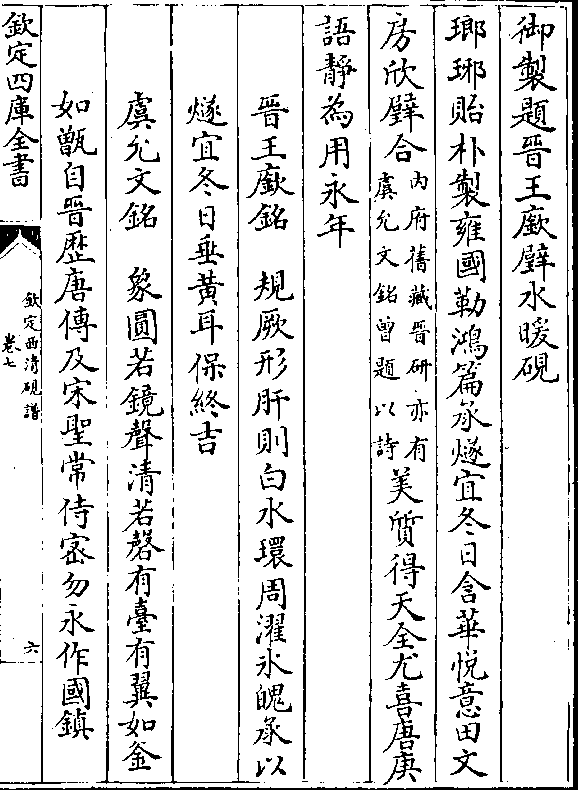 御製題晉王廞璧水暖硯
瑯琊貽朴製雍國勒鴻篇承燧宜冬日含華悅意田文
房欣璧合內府舊藏晉研亦有虞允文銘曾題以詩美質得天全尤喜唐庚
語靜為用永年
晉王廞銘　規厥形肝則白水環周濯氷魄承以
燧宜冬日垂黃耳保終吉
虞允文銘　象圓若鏡聲清若磬有臺有翼如釜
如甑自晉歷唐傳及宋聖常侍密勿永作國鎮
欽定四庫全書
欽定西清硯譜
卷七
六